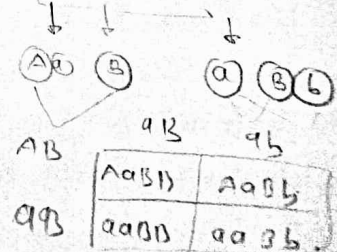 A a B a B b
aB ab
AB AaBB AaBb
aB aaBB aaBb